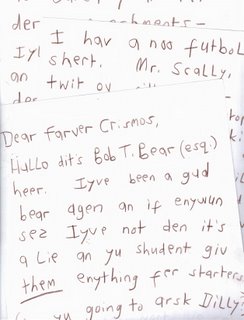 I hav a noo futbol
Iyl
shert. Mr. Scally,
an twit ov
Dear Farver Crismos,
Hullo dit's Bob T. Bear (esq.)
heer. Iyve been a gud
bear agen an if enywun
sez Iyve not den it's
a Lie an yu shudent giv
them enything fer starters
yu going to arsk Dilly?